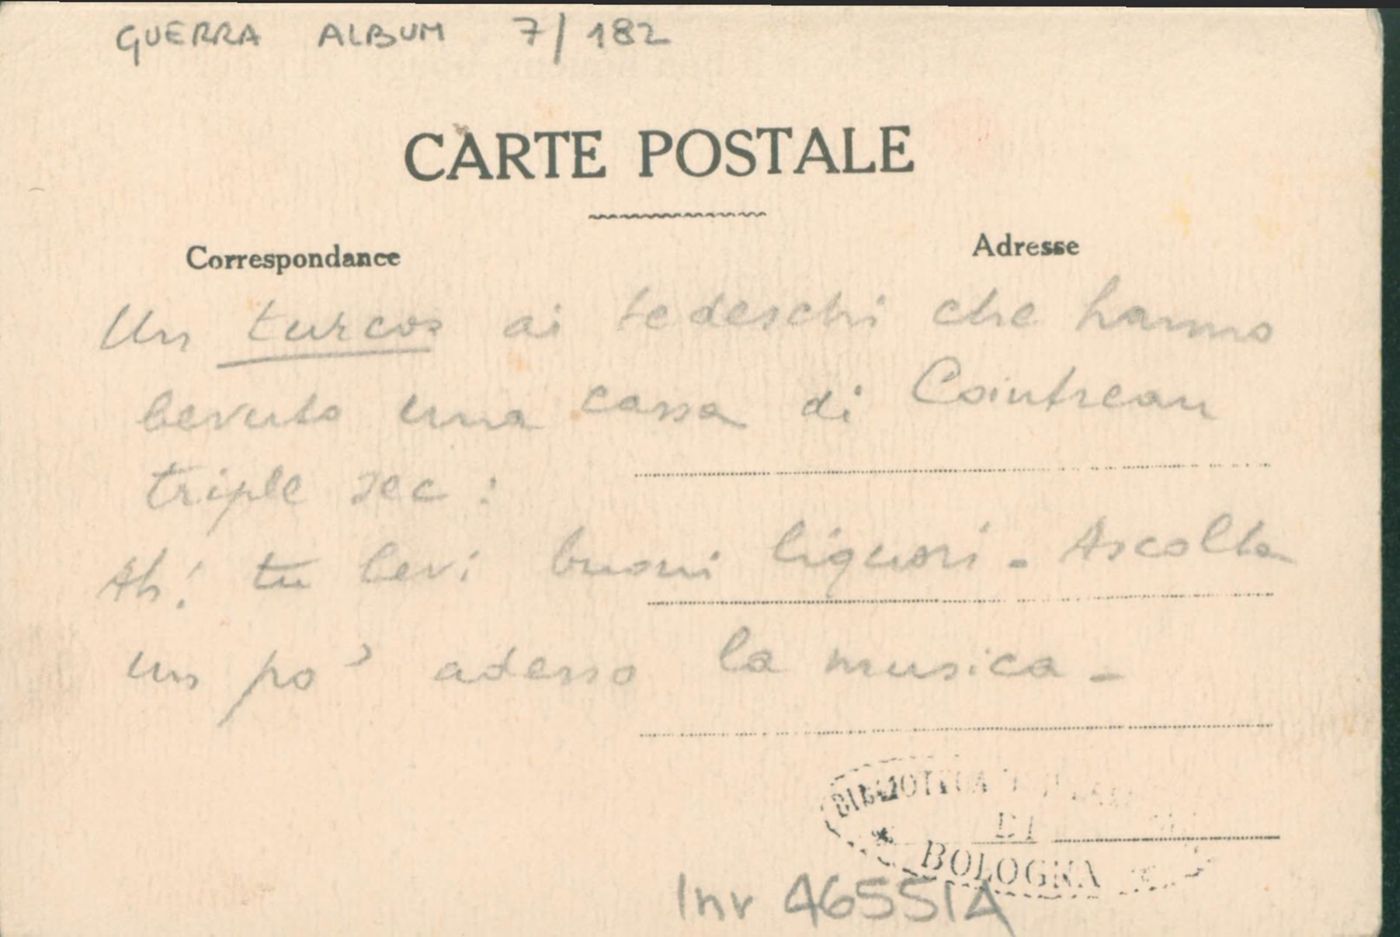 GUERRA ALBUM 7/182
CARTE POSTALE
Correspondance
Adresse
Un turcos ai tedeschi che hanno
bevuto una cassa di Cointreau
triple sec :
Ah! tu bevi buoni liquori - Ascolta
un po' adesso la musica -
BIBLIOTECA
DI
BOLOGNA
Inv 46551A